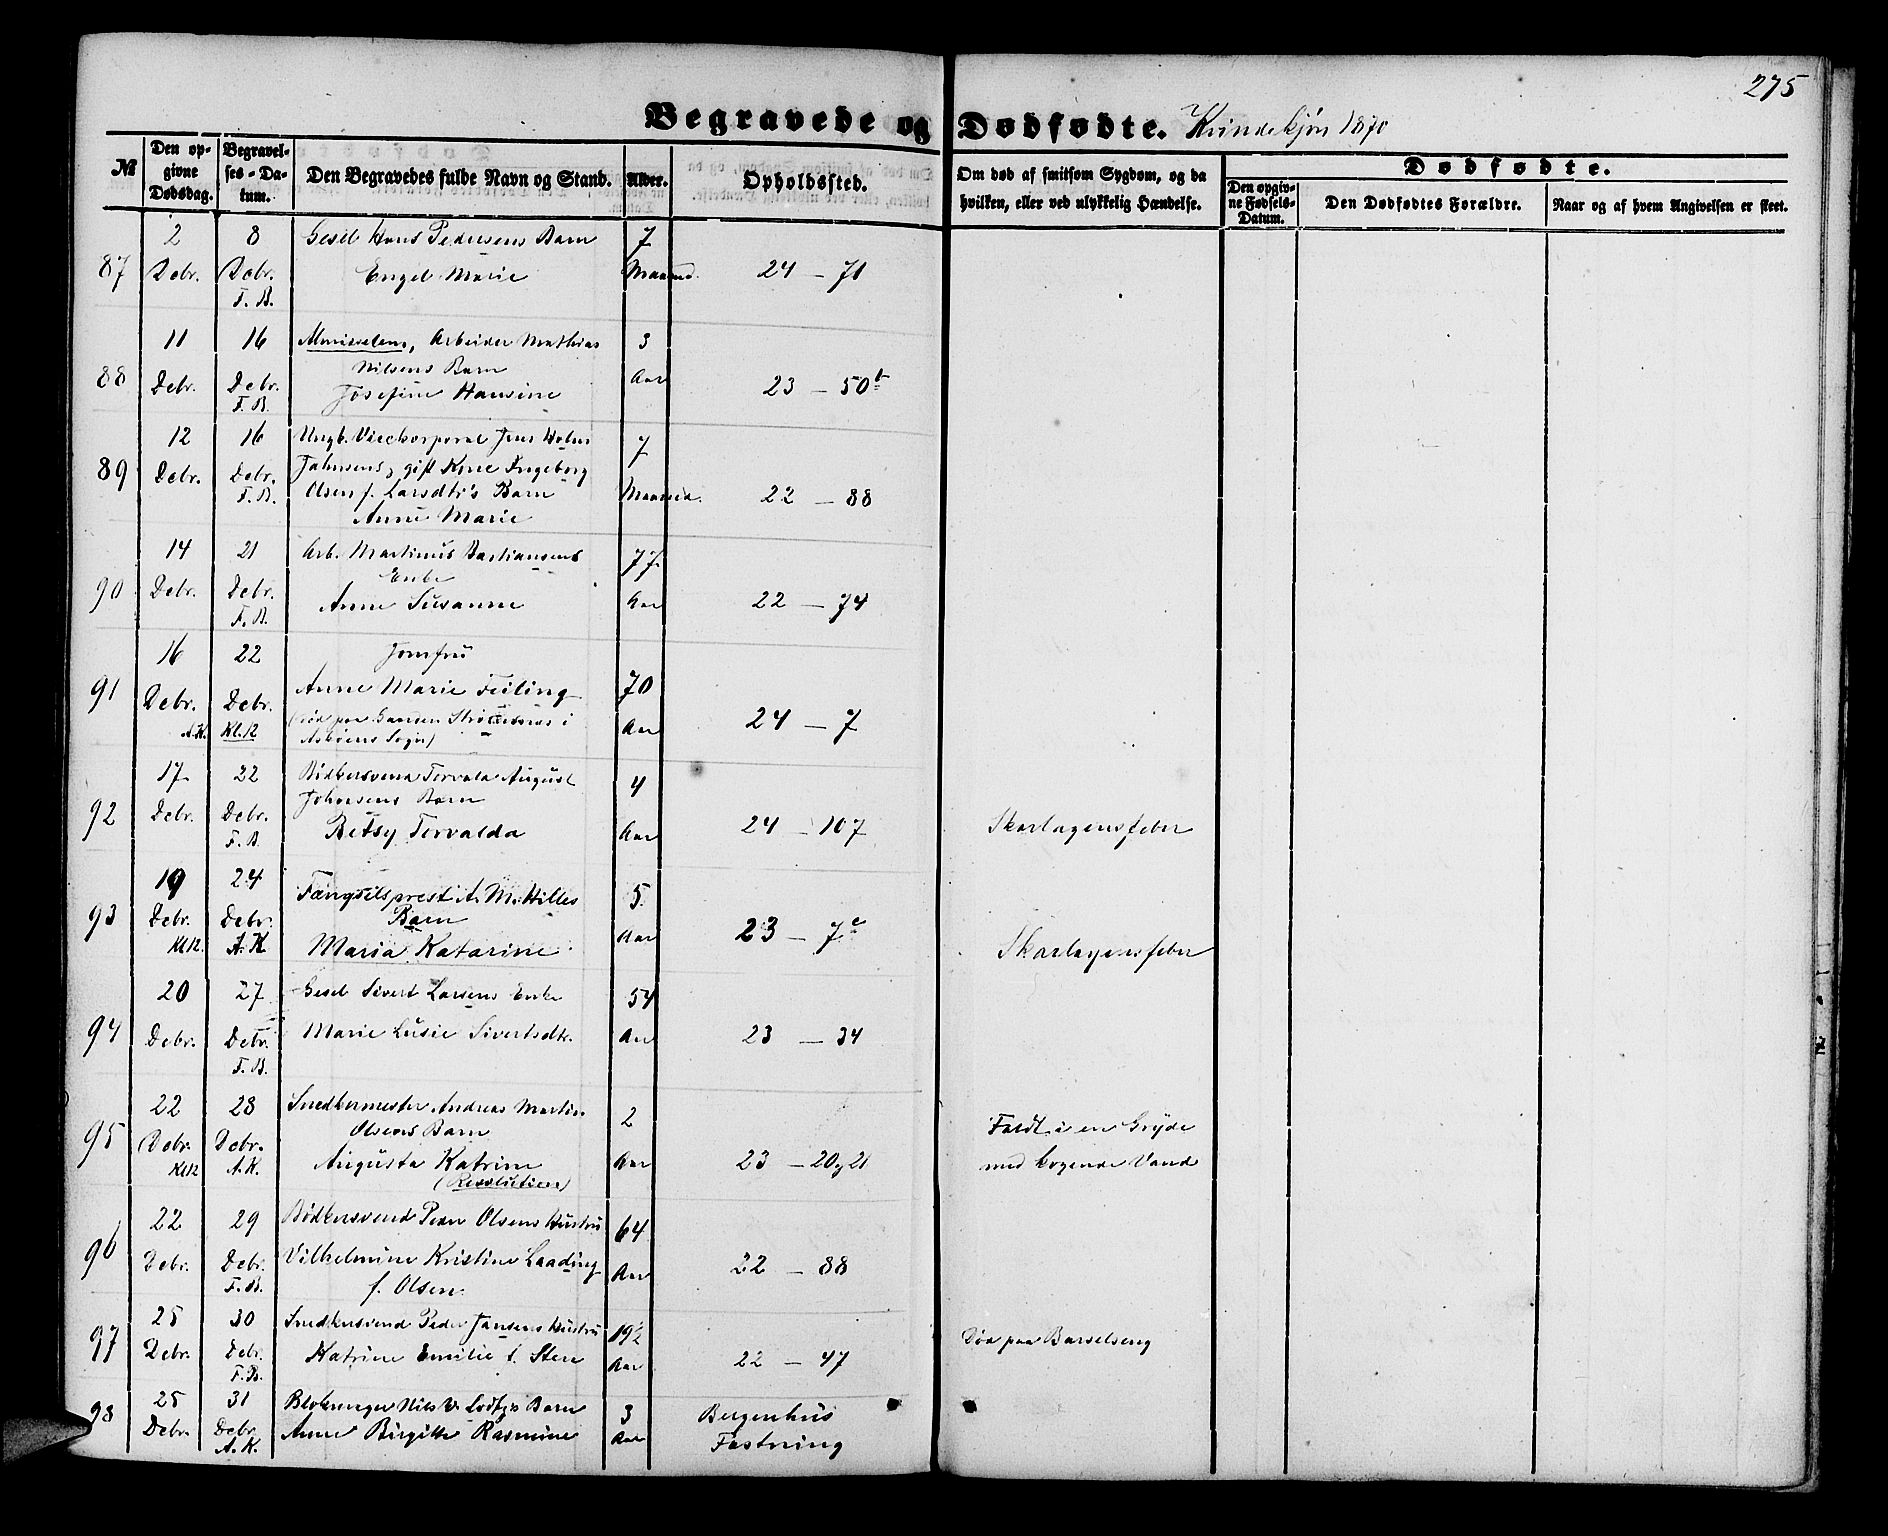 275
Begravede og Dødfødte. Kvindekjøn 1870
№
Den opgivne Dødsdag.
Begravelses-Datum.
Den Begravedes fulde Navn og Stand.
Alder.
Opholdssted.
Om død af smitsom Sygdom, og da hvilken, eller ved ulykkelig Hændelse.
Dødfødte.
Den opgivne Fødsels-Datum.
Den Dødfødtes Forældre.
Naar og af hvem Angivelsen er skeet.
2 8 Gesel Hans Pedersens Barn 7
87 Debr. Debr. Engel Marie Maaned. 24 — 71
F. B.
11 16 Arbeider Mathias 3
Nilsens Barn
88 Debr. Debr. Josefine Hansine Aar 23 — 50b
F. B.
12 16 Ungk. Vicekorporal Jens Holm 7
Johnsens, gift Kone Ingeborg
89 Debr. Debr. Olsen f. Larsdtr's Barn Maaned. 22 — 88
F. B. Anne Marie
14 21 Arb. Martinus Bastiansens 77
Enke
90 Debr. Debr. Anne Susanne Aar 22 — 74
F. B.
16 22 Jomfru
91 Debr. Debr. Anne Marie Feiling 70
A.K. Kl. 12 (død paa Gaarden i Aar 24 — 7
Askøens Sogn)
17 22 Bødkersvend Torvald August 4
Johnsens Barn
92 Debr. Debr. Betsy Torvalda Aar 24 — 107 Skarlagensfeber
F. B.
19 24 Fængselsprest A. M. Hilles 5
93 Debr. Debr. Barn
Kl 12. A. K. Maria Katarine Aar 23 — 7c Skarlagensfeber
20 27 Gesel Sivert Larsens Enke 54
94 Debr. Debr. Marie Lusie Sivertsdtr. Aar 23 — 34
F. B.
22 28 Snedkermester Andreas Martin 2
Olsens Barn Faldt i en Gryde
95 Debr. Debr. Augusta Katrine Aar 23 — 20 og 21 med kogende Vand
Kl 12 A. K. (Resolution)
22 29 Bødkersvend Peder Olsens Hustru 64
96 Debr. Debr. Vilhelmine Kristine Laading Aar 22 — 88
F. B. f. Olsen.
25 30 Snedkersvend Peder Jansens Hustru 19½
97 Debr. Debr. Katrine Emilie f. Sten Aar 22 — 47 Død paa Barselseng
F. B.
25 31 Nils Barn 3 Bergenhus
98 Debr. Debr. Anne Birgitte Rasmine Aar Fæstning
A. K.